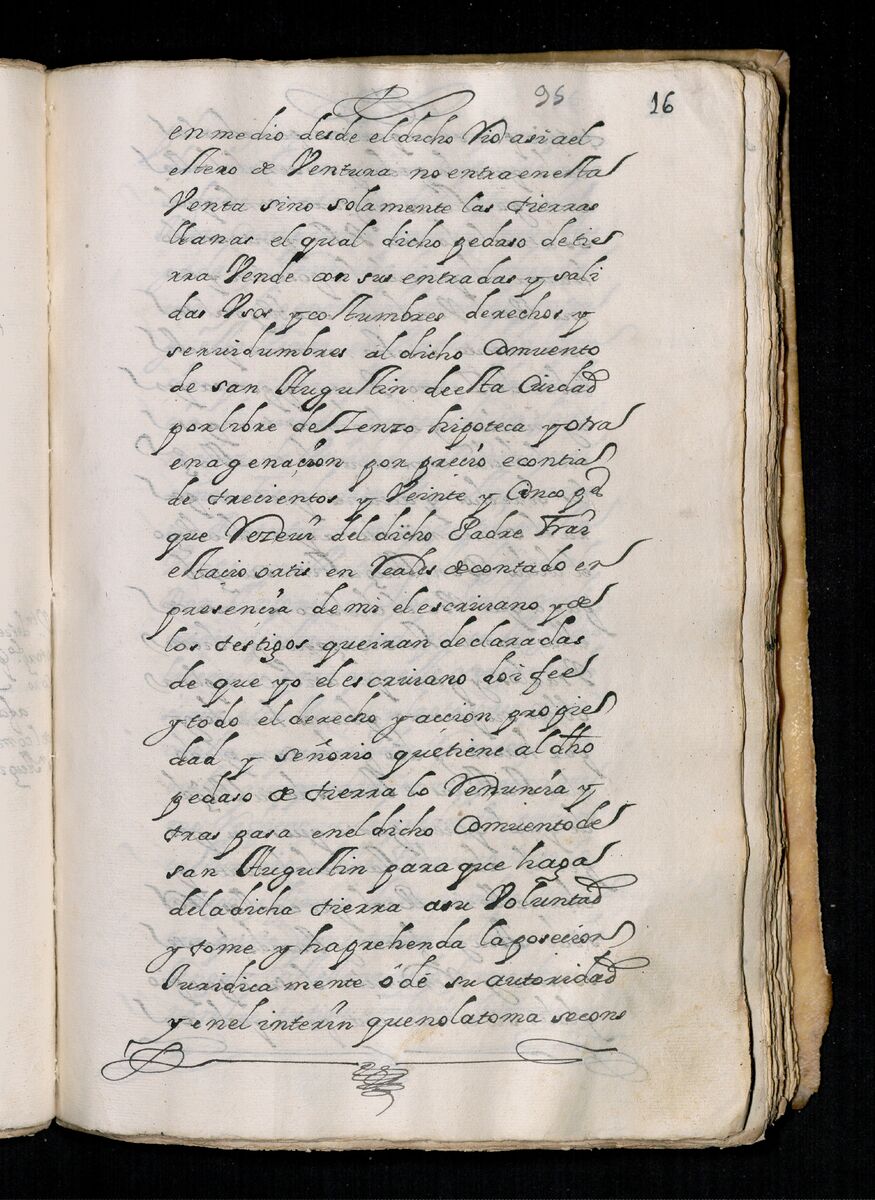 95
16
en medio desde el dicho Rio asia el
estero de Ventura no entra en esta
Venta sino solamente las tierras
llanas el qual dicho pedaso de tie
rra Vende con sus entradas y sali
das Usos y costumbres derechos y
servidumbres al dicho Comuento
de san Augustin de esta Ciudad
por libre de Zenzo hipoteca y otra
enagenacion por precio e contia
de trecientos y Veinte y Cinco ps
que Rezeui del dicho Padre Frai
estacio ortis en Reales de contado en
presencia de mi el escriuano y de
los testigos que iran declaradas
de que yo el escriuano doi fee
y todo el derecho y accion propie
dad y señorio que tiene al dho
pedaso de tierra lo Renuncia y
traspasa en el dicho Comuento de
san Augustin para que haga
de la dicha tierra a su Voluntad
y tome y haprehenda la posecion
Juridica mente ó de su autoridad
y en el interin que no la toma se cons